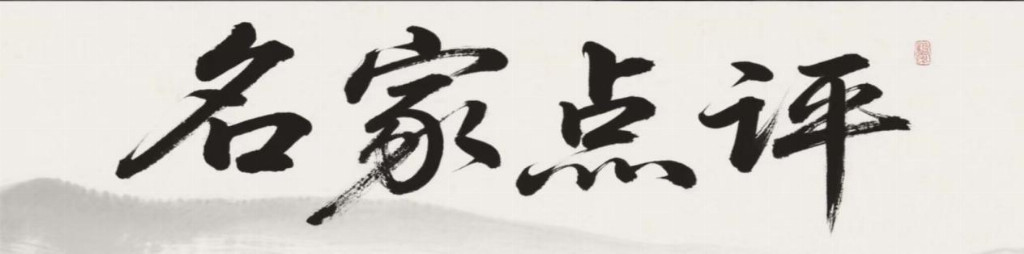 名家点评